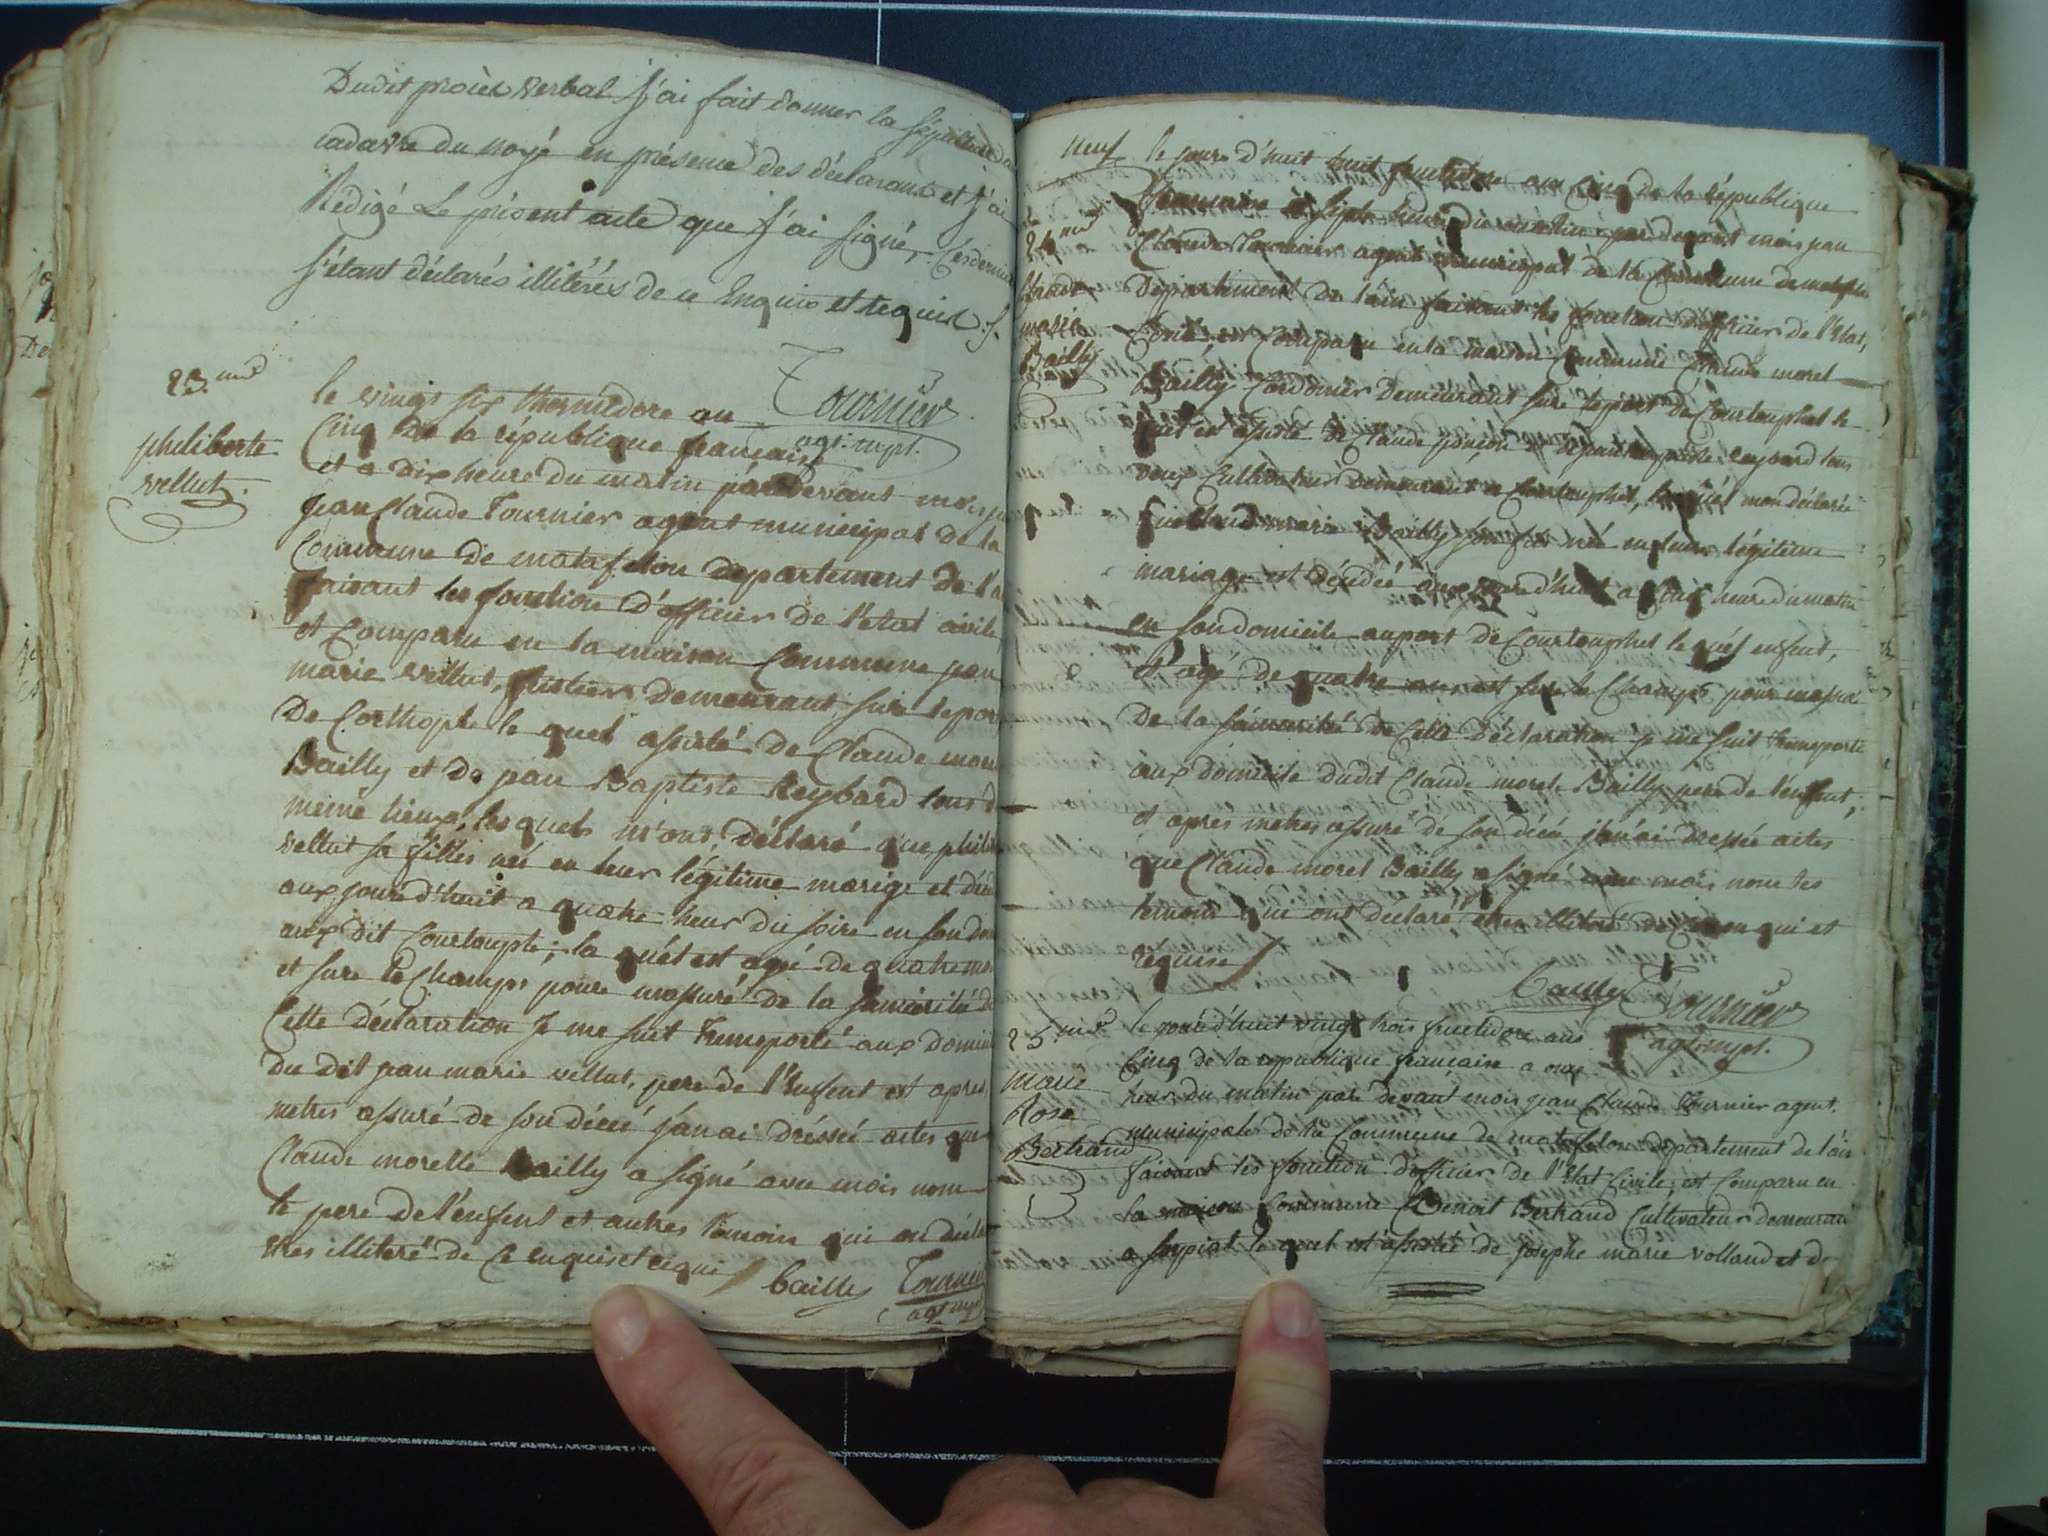 Dudit procès verbal j'ai fait donner la sépulture au
cadavre du noyé en présence des déclarant et j'ai
Rédigé Le présent acte que j'ai signé, Ces dernier
s'étant déclarés illitérés de ce Enquis et requis.
Tournier
agt. mpl.
23.me
philiberte
vellut.
le vingt six thermidore an
Cinq De la république française
et a dix heure du matin par devant mois
jean Claude Tournier agent municipal de la
Commune de matafelon departement de l'a
faisant les fonction d'officier de l'etat civile
et Comparu en la maison Commune jean
marie vellut, demeurant sur le por
De Corthople le quel assisté de Claude more
Bailly et de jean Baptiste Reybard tous d
meme lieux les quels m'ont déclaré que philib
vellut sa filles neé en leur légitime marige et décé
aux jourd'huit a quatre heur du soire en son do
aux dit Courtouple; la quél est agé de quatre
et sure le Champs poure m'assuré de la sincérité de
Cette déclaration je me suit Transporté aux domici
du dit jean marie vellut, pere de l'Enfent est apres
metres assuré de son décéé j'anai dréssé actes que
Claude morelle Bailly a signé avec mois non
le pere de l'enfent et autres temoins qui on décla
etres illiteré de Ce enquis et requi
bailly Tournier
agt mpl
neuf
24me
Claude
marie
Bailly
le jourd'huit huit fructidore an Cinq de la république
française a sept heure du matin par devant mois jean
Claude Tournier agent municipal de la Commune de matafelon
Département de l'ain faisant les fonction d'officier de l'Etat,
Civile, et Comparu en la maison Commune Claude morel
Bailly Cordonier Demeurant sure le port de Courtouphle le
quel est assisté de Claude ponçon et de jean baptiste reybard tous
deux Cultivateur demeurant a Courtouphle, lesquels mon déclaré
que Claude marie Bailly son fils né en leur légitime
mariage est décédéé aux jourd'huit a Cinq heure du matin
en son domicile au port de Courtouphle le quél enfent,
agé de quatre ans est sure le Champs pour massuré
De la sincérité de Cette déclaration je me suit transporté
aux domicile dudit Claude morel Bailly pere de l'enfent,
et apres metres assuré de son décéé j'anai dressée actes
que Claude morel Bailly a signé avec mois non les
temoins qui ont declaré etres illitéré de Ce enquis et
réquise
bailly Tournier
agt mpl.
25.me
marie
Rose
Bertrand
le jourd'huit vingt trois fructidore ans
Cinq de la republique française a onze
heur du matin par devant mois jean Claude Tournier agent
municipale de la Commune de matafelon departement de l'ain
faisant les fonction d'officier de l'Etat Civile; et Comparu en
la maison Commune Benoit Bertrand Cultivateur demeurant
a soypiat le quel est assisté de josephe marie volland et de